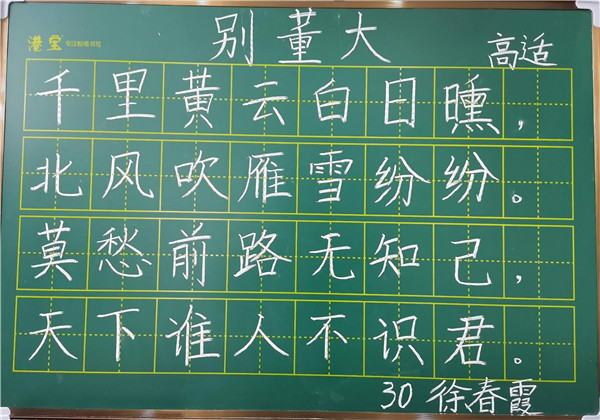 港宝 专注粉笔书写
别董大
高适
千里黄云白日曛，
北风吹雁雪纷纷。
莫愁前路无知己，
天下谁人不识君。
30 徐春霞